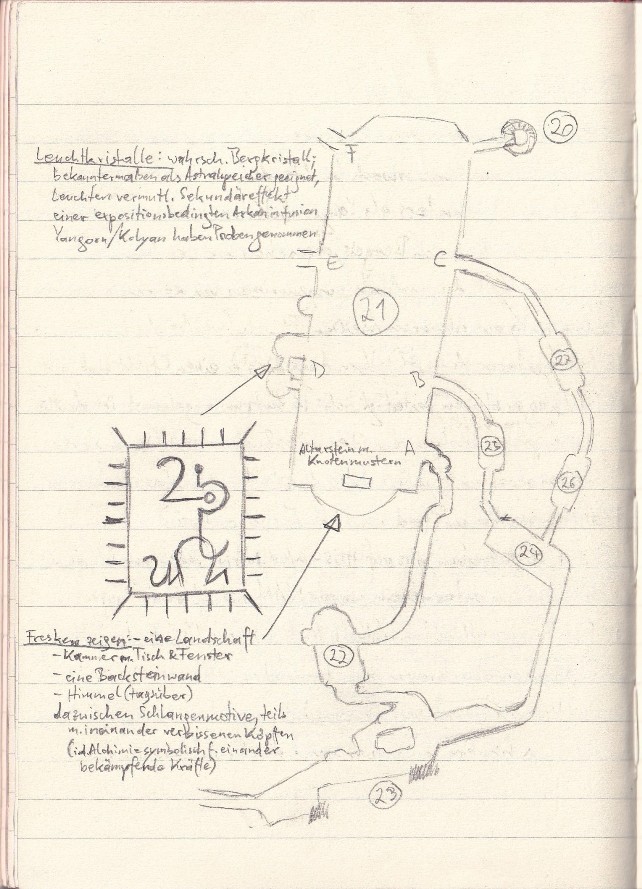 Leuchtkristalle: wahrsch. Bergkristall;
bekanntermaßen als Astralspeicher geeignet,
Leuchten vermutl. Sekundäreffekt
einer expositionsbedingten Arkaninfusion
Yangorn/Kolyan haben Proben genommen
20
F
E
C
21
27
D
B
A
25
Altarstein m.
Knotenmustern
26
24
Fresken zeigen: - eine Landschaft
- Kammer m. Tisch & Fenster
- eine Backsteinwand
- Himmel (tagsüber)
dazwischen Schlangenmotive, teils
m. ineinander verbissenen Köpfen
(i.d. Alchimie symbolisch f. einander
bekämpfende Kräfte)
22
23